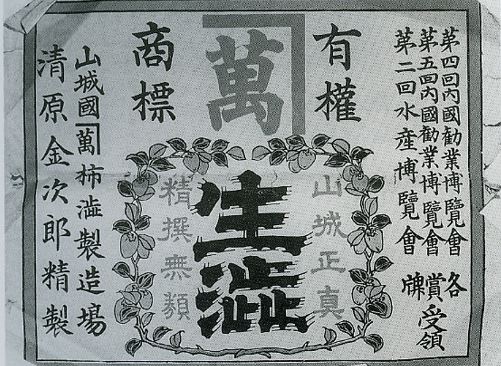 第四回內國勸業博覽會
第五回內國勸業博覽會
第二回水産博覽會
各賞牌受領
有權
商標
萬
山城正真
生澁
精撰無類
山城國萬柿澁製造場
清原金次郎精製